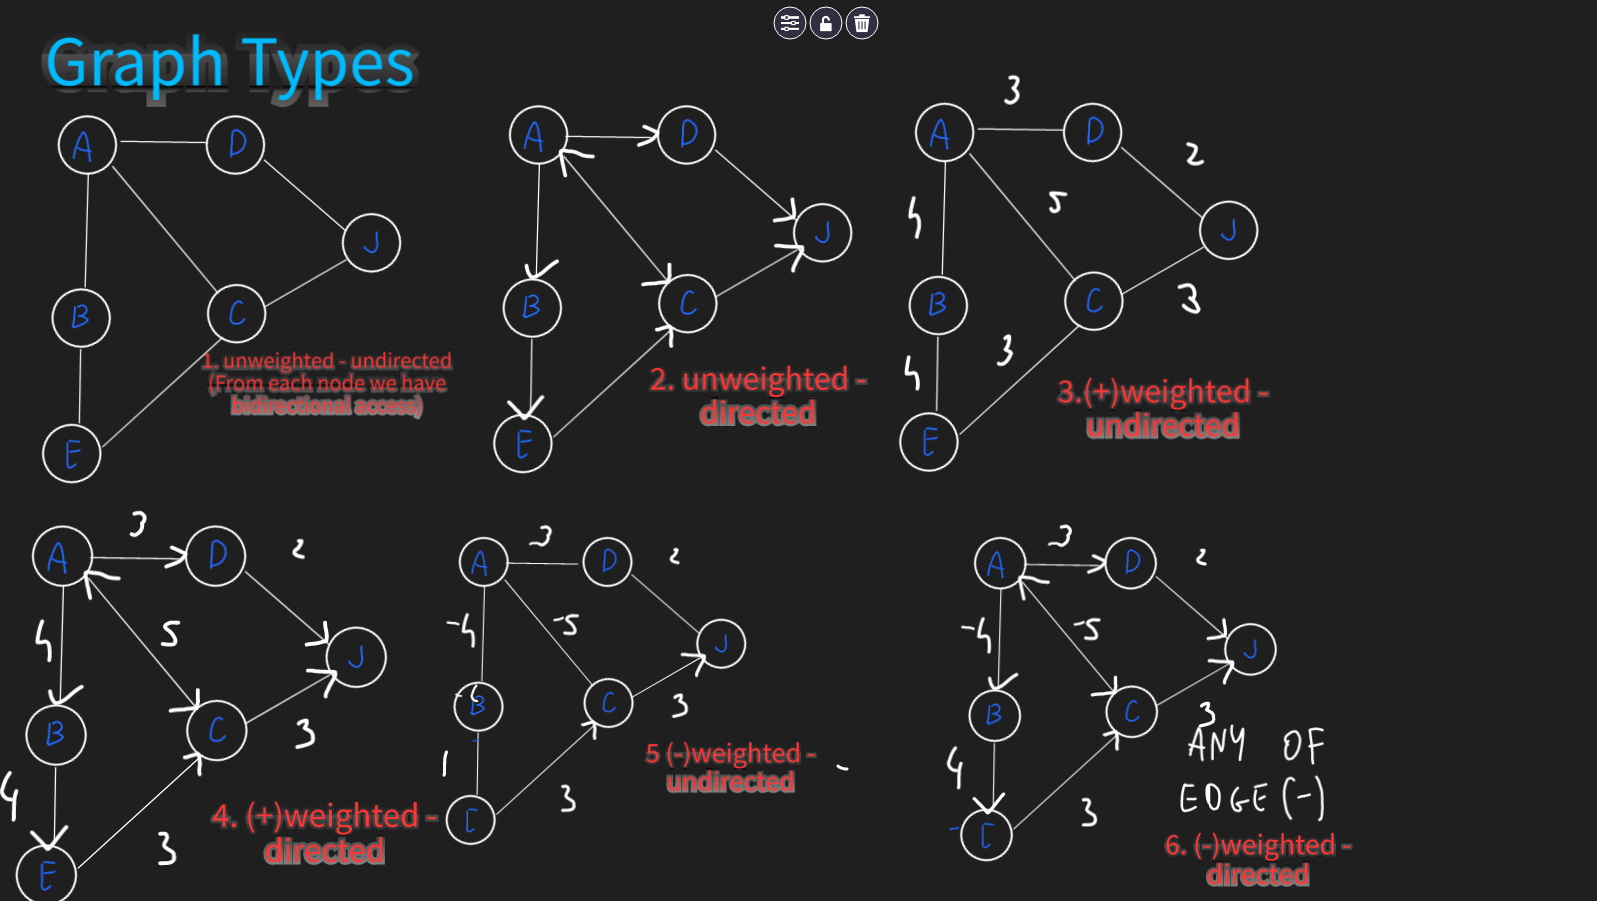 Graph Types
A
D
J
B
C
E
1. unweighted - undirected
(From each node we have
bidirectional access)
A
D
J
B
C
E
2. unweighted -
directed
3
A
D
2
4
5
J
B
C
3
4
3
E
3.(+)weighted -
undirected
3
A
D
2
4
5
J
B
C
3
4
3
E
4. (+)weighted -
directed
-3
A
D
2
-4
-5
J
B
C
3
1
3
5 (-)weighted -
undirected
-3
A
D
2
-4
-5
J
B
C
3
4
3
ANY OF
EDGE (-)
6. (-)weighted -
directed